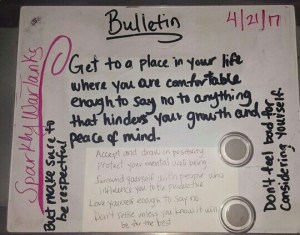 Bulletin
4/21/17
Sparkly WarTanks
But make sure to
be respectful
Get to a place in your life
where you are comfortable
enough to say no to anything
that hinders your growth and
peace of mind.
Accept and dwell in positivity
Protect your mental well being
Surround yourself with people who
influence you to be productive
Love yourself enough to say no
Don't settle unless you know it will
be for the best
Don't feel bad for
considering yourself